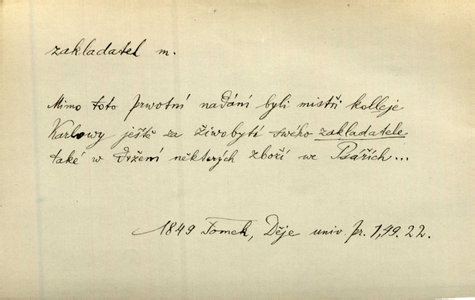 zakladatel m.
Mimo toto prwotní nadání byli mistři kolleje
Karlowy ještě za živobytí swého zakladatele
také w držení některých zboží we Psářích...
1849 Tomek, Děje univ. pr. 1,49.22.